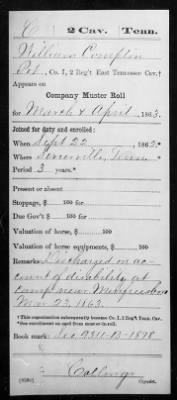 C 2 Cav. Tenn.
William Compton
Pvt, Co. I, 2 Reg't East Tennessee Cav.†
Appears on
Company Muster Roll
for March & April, 1863.
Joined for duty and enrolled:
When Sept 22, 1862.
Where Tenn
Period 3 years.*
Present or absent
Stoppage, $ 100 for
Due Gov't $ 100 for
Valuation of horse, $ 100
Valuation of horse equipments, $ 100
Remarks: Discharged on ac-
count of disability at
camp near Murfreesboro
Mar 23, 1863.
†This organization subsequently became Co. I, 2 Reg't Tenn. Cav.
*See enrollment on card from muster-in roll.
Book mark: See 9311-B-1878
Collings
Copyist.